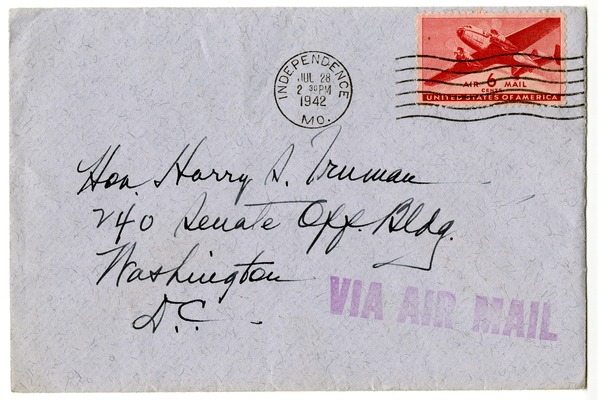 INDEPENDENCE
JUL 28
2 30 PM
1942
MO.
AIR 6 MAIL
CENTS
UNITED STATES OF AMERICA
Hon. Harry S. Truman
240 Senate Off. Bldg.
Washington
D.C.
VIA AIR MAIL